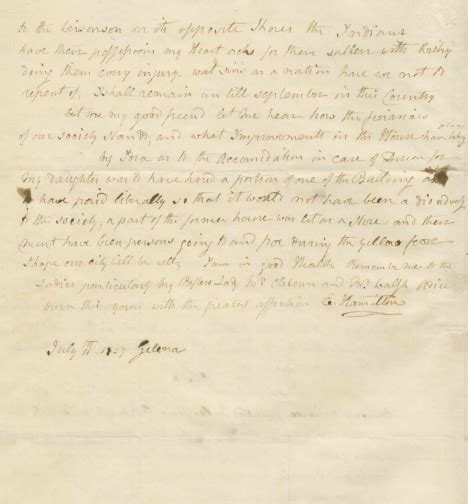 to the on its opposite Shores the Indians
have their possessions my Heart achs for them
doing them every injury what Sins as a nation have we not to
repent of, I shall remain un till September in this Country
let me my good friend let me hear how the finances
of our society Stands, and what Improvements in the House have taken place
my Idea as to the Accomidation in case of for
my daughter was to have hired a portion of one of the Building and
to have paid liberally so that it would not have been a
to the society, a part of the former house was let as a Store and there
must have been persons going to and fro during the yellow fever
I hope our city will be well; I am in good Health Remember me to the
Ladies particularly my Lady Mrs and Mrs
burn this yours with the greatest affection E Hamilton
July 1837 Gelena